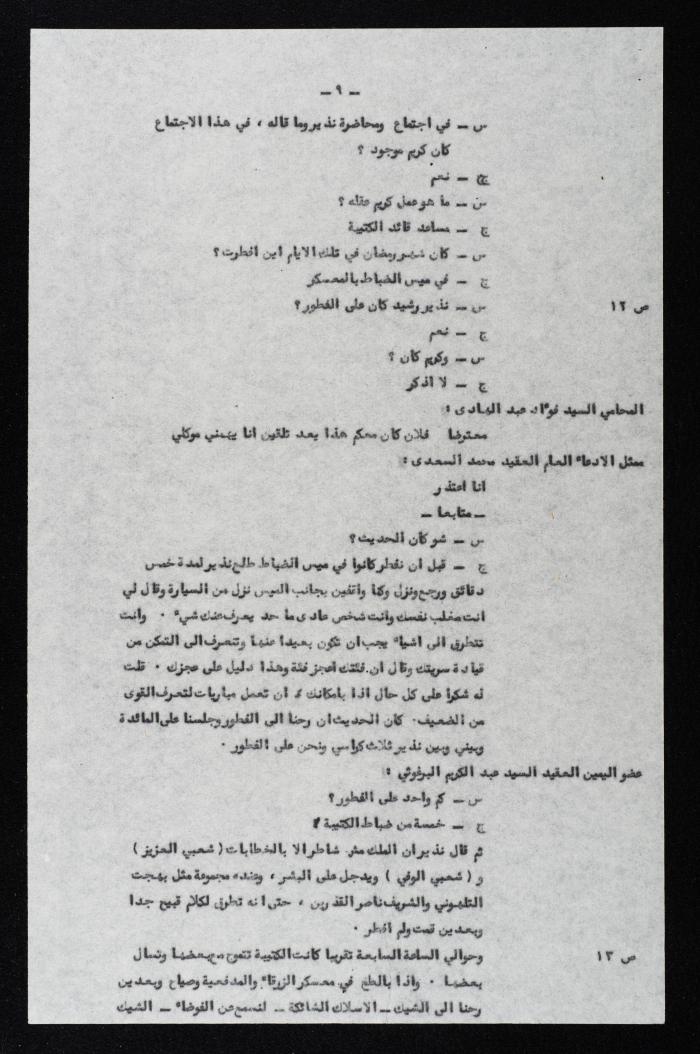 ـ ٩ ـ
س ـ في اجتماع ومحاضرة نذير وما قاله ، في هذا الاجتماع
كان كريم موجود ؟
ج ـ نعم
س ـ ما هو عمل كريم عقله ؟
ج ـ مساعد قائد الكتيبة
س ـ كان شهر رمضان في تلك الايام اين افطرت ؟
ج ـ في ميس الضباط بالمعسكر
ص ١٢ س ـ نذير رشيد كان على الفطور ؟
ج ـ نعم
س ـ وكريم كان ؟
ج ـ لا اذكر
المحامي السيد فؤاد عبد الهادى :
معترضا فلان كان معكم هذا يعد تلقين انا يهمني موكلي
ممثل الادعاء العام العقيد محمد السعدى :
انا اعتذر
ـ متابعا ـ
س ـ شو كان الحديث ؟
ج ـ قبل ان نفطر كانوا في ميس الضباط طالع نذير لمدة خمس
دقائق ورجع ونزل وكنا واقفين بجانب الميس نزل من السيارة وقال لي
انت مغلب نفسك وانت شخص عادى ما حد يعرف عنك شيء ٠ وانت
تتطرق الى اشياء يجب ان تكون بعيدا عنها وتنصرف الى التمكن من
قيادة سريتك وقال ان فئتك اعجز فئة وهذا دليل على عجزك ٠ قلت
له شكرا على كل حال اذا بامكانك ان تعمل مباريات لتعرف القوى
من الضعيف ٠ كان الحديث ان رحنا الى الفطور وجلسنا على المائدة
وبيني وبين نذير ثلاث كراسي ونحن على الفطور ٠
عضو اليمين العقيد السيد عبد الكريم البرغوثي :
س ـ كم واحد على الفطور ؟
ج ـ خمسة من ضباط الكتيبة
ثم قال نذير ان الملك مش شاطر الا بالخطابات ( شعبي العزيز )
و ( شعبي الوفي ) ويدجل على البشر ، وعنده مجموعة مثل بهجت
التلهوني والشريف ناصر القذرين ، حتى انه تطرق لكلام قبيح جدا
وبعدين قمت ولم افطر ٠
ص ١٣ وحوالي الساعة السابعة تقريبا كانت الكتيبة تتموج مع بعضها وتسال
بعضها ٠ واذا بالطخ في معسكر الزرقاء والمدفعية وصياح وبعدين
رحنا الى الشيك ـ الاسلاك الشائكة ـ لنسمع عن الفوضاء ـ الشيك